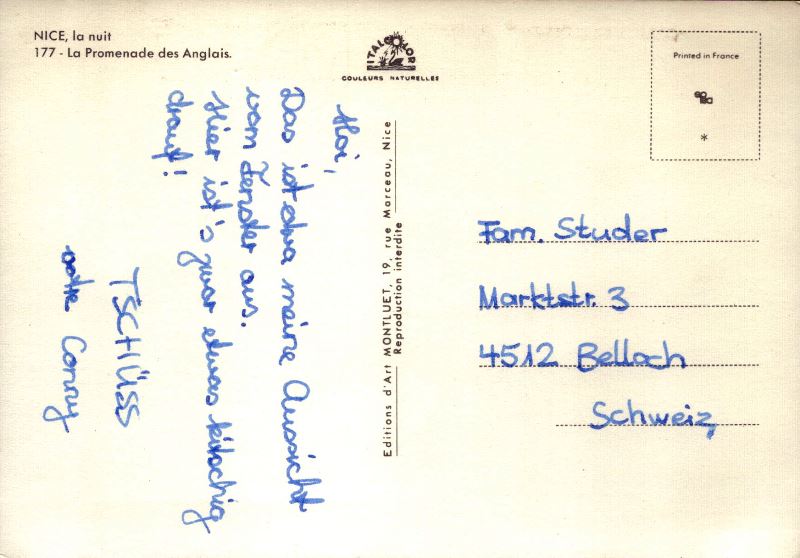 NICE, la nuit
177 - La Promenade des Anglais.
ITALCOLOR
COULEURS NATURELLES
Printed in France
*
Hoi,
Das ist etwa meine Aussicht
vom Fenster aus.
Hier ist's zwar etwas kitschig
drauf!
TSCHÜSS
Conny
Editions d'Art MONTLUET, 19, rue Marceau, Nice
Reproduction interdite
Fam. Studer
Marktstr. 3
4512 Bellach
Schweiz